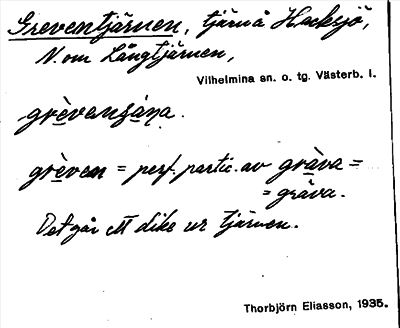 Greventjärnen, tjärn å Hacksjö,
N. om Långtjärnen,
Vilhelmina sn. o. tg. Västerb. l.
grèvenʃäṇa.
grèven = perf. partic. av gràva =
= gräva.
Det går ett dike ur tjärnen.
Thorbjörn Eliasson, 1935.